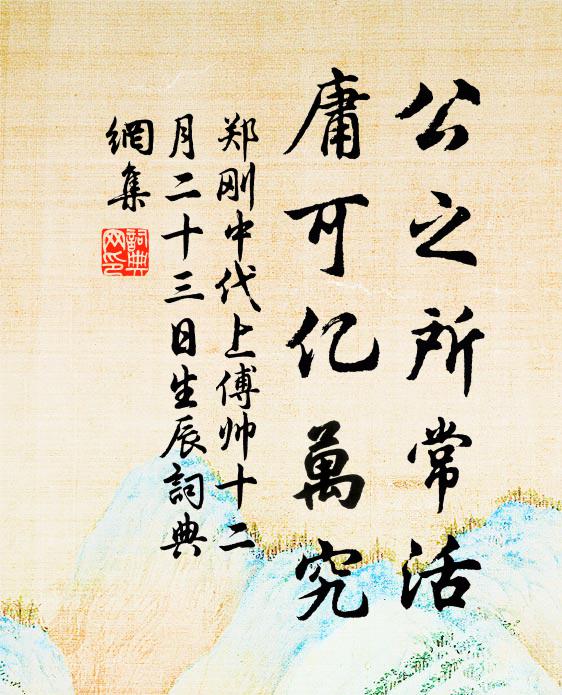 公之所常活
庸可亿萬究
郑刚中代上傅帅十二
月二十三日生辰詞典
網集
詞典
网印